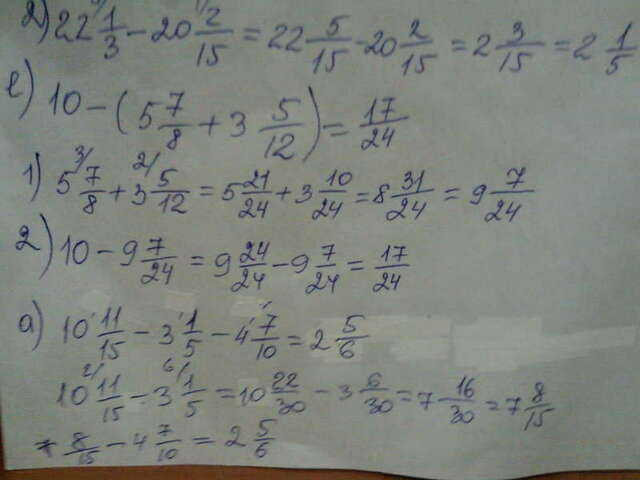 2) 22 1/3 - 20 2/15 = 22 5/15 - 20 2/15 = 2 3/15 = 2 1/5
е) 10 - (5 7/8 + 3 5/12) = 17/24
1) 5 7/8 + 3 5/12 = 5 21/24 + 3 10/24 = 8 31/24 = 9 7/24
2) 10 - 9 7/24 = 9 24/24 - 9 7/24 = 17/24
а) 10 11/15 - 3 1/5 - 4 7/10 = 2 5/6
10 11/15 - 3 1/5 = 10 22/30 - 3 6/30 = 7 16/30 = 7 8/15
8/15 - 4 7/10 = 2 5/6